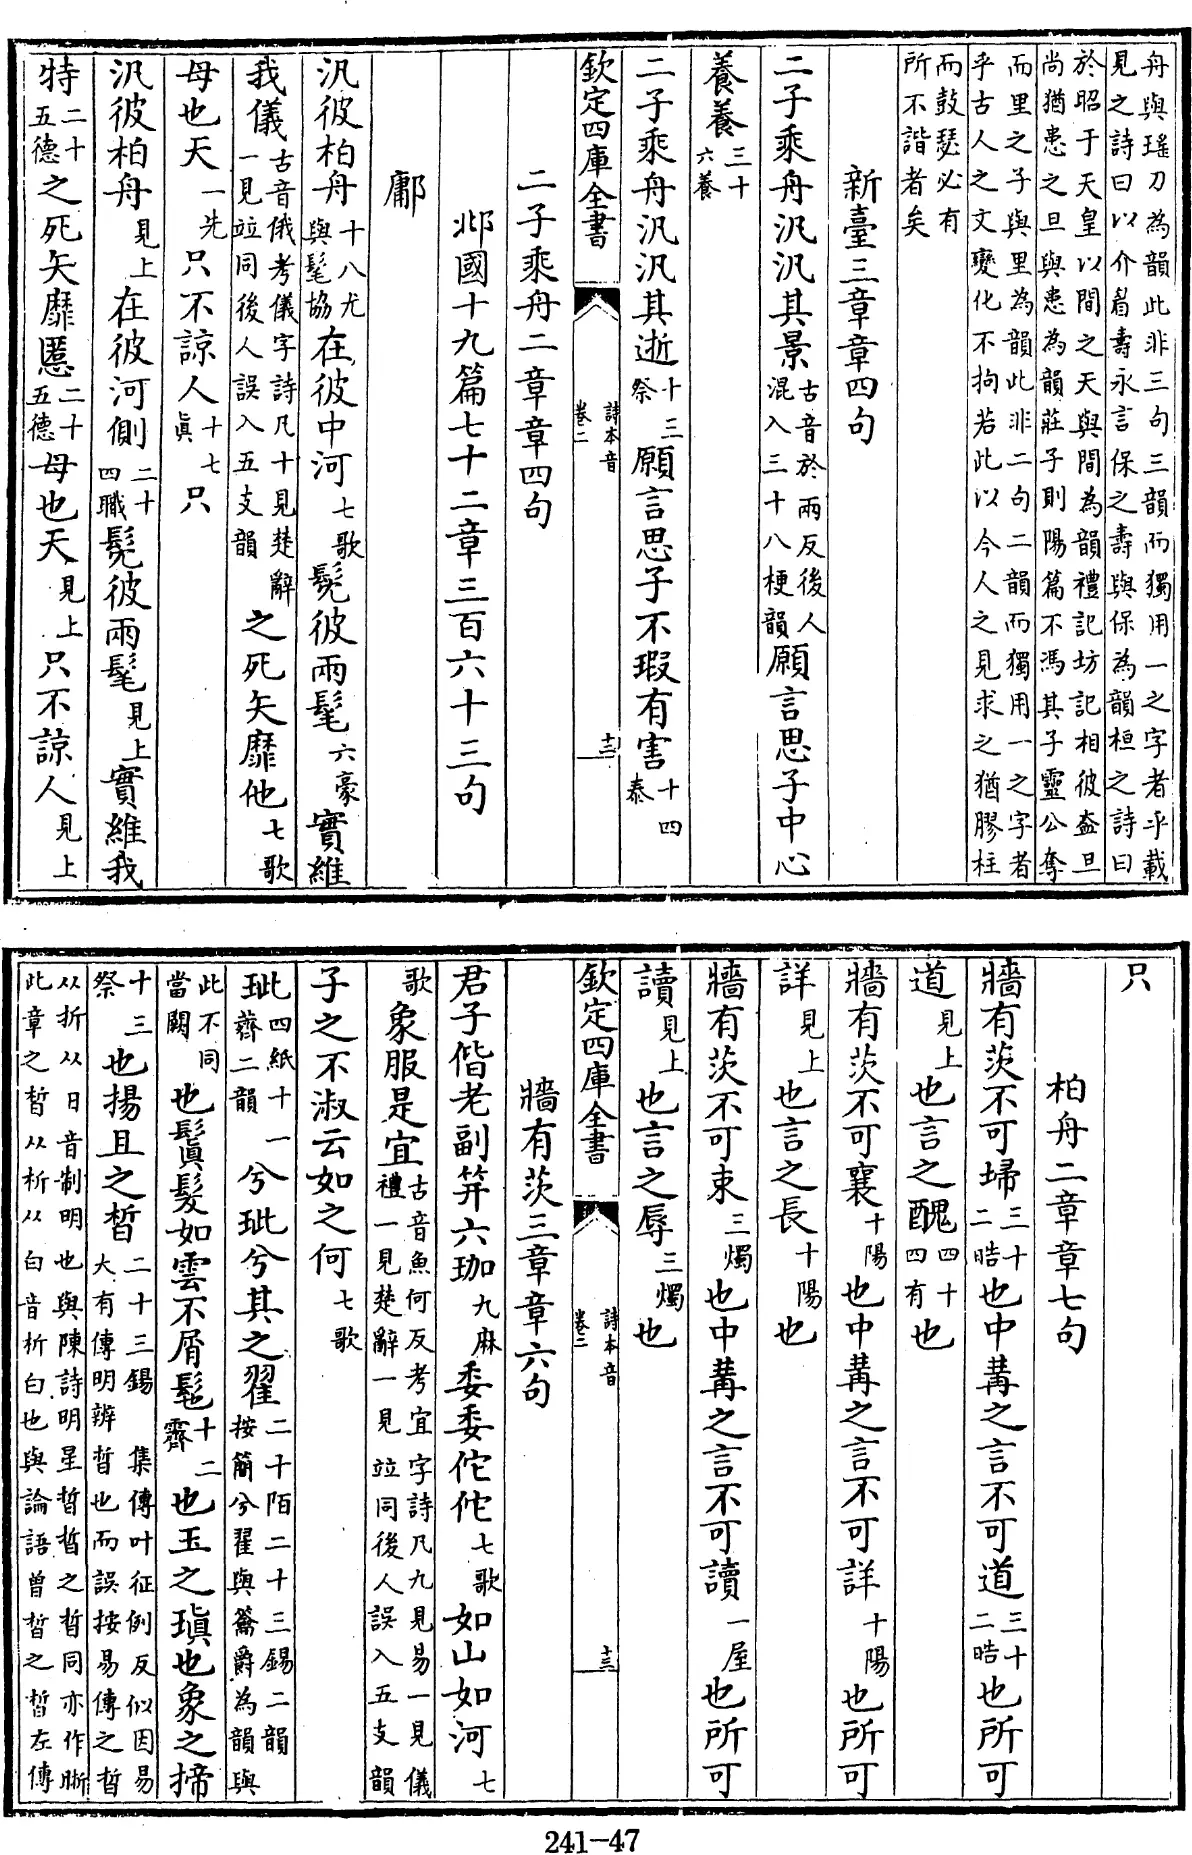 舟與瑤刀為韻此非三句三韻而獨用一之字者乎載
見之詩曰以介眉壽永言保之壽與保為韻桓之詩曰
於昭于天皇以間之天與間為韻禮記坊記相彼盍旦
尚猶患之旦與患為韻莊子則陽篇不馮其子靈公奪
而里之子與里為韻此非二句二韻而獨用一之字者
乎古人之文變化不拘若此以今人之見求之猶膠柱
而鼓瑟必有
所不諧者矣
新臺三章章四句
二子乘舟汎汎其景古音於兩反後人混入三十八梗韻願言思子中心
養養三十六養
二子乘舟汎汎其逝十三祭願言思子不瑕有害十四泰
欽定四庫全書 詩本音卷二 十二
二子乘舟二章章四句
邶國十九篇七十二章三百六十三句
鄘
汎彼柏舟十八尤與髦協在彼中河七歌髧彼兩髦六豪實維
我儀古音俄考儀字詩凡十見楚辭一見竝同後人誤入五支韻之死矢靡他七歌
母也天一先只不諒人十七真只
汎彼柏舟見上在彼河側二十四職髧彼兩髦見上實維我
特二十五德之死矢靡慝二十五德母也天見上只不諒人見上
只
柏舟二章章七句
牆有茨不可埽三十二晧也中冓之言不可道三十二晧也所可
道見上也言之醜四十四有也
牆有茨不可襄十陽也中冓之言不可詳十陽也所可
詳見上也言之長十陽也
牆有茨不可束三燭也中冓之言不可讀一屋也所可
讀見上也言之辱三燭也
欽定四庫全書 詩本音卷二 十三
牆有茨三章章六句
君子偕老副笄六珈九麻委委佗佗七歌如山如河七
歌象服是宜古音魚何反考宜字詩凡九見易一見儀禮一見楚辭一見竝同後人誤入五支韻
子之不淑云如之何七歌
玼四紙十一薺二韻兮玼兮其之翟二十陌二十三錫二韻按簡兮翟與籥爵為韻與
此不同當闕也鬒髮如雲不屑髢十二霽也玉之瑱也象之揥
十三祭也揚且之晳二十三錫 集傳叶征例反似因易大有傳明辨晢也而誤按易傳之晢
从折从日音制明也與陳詩明星晢晢之晢同亦作晣
此章之晳从析从白音析白也與論語曾晳之晳左傳
241-47